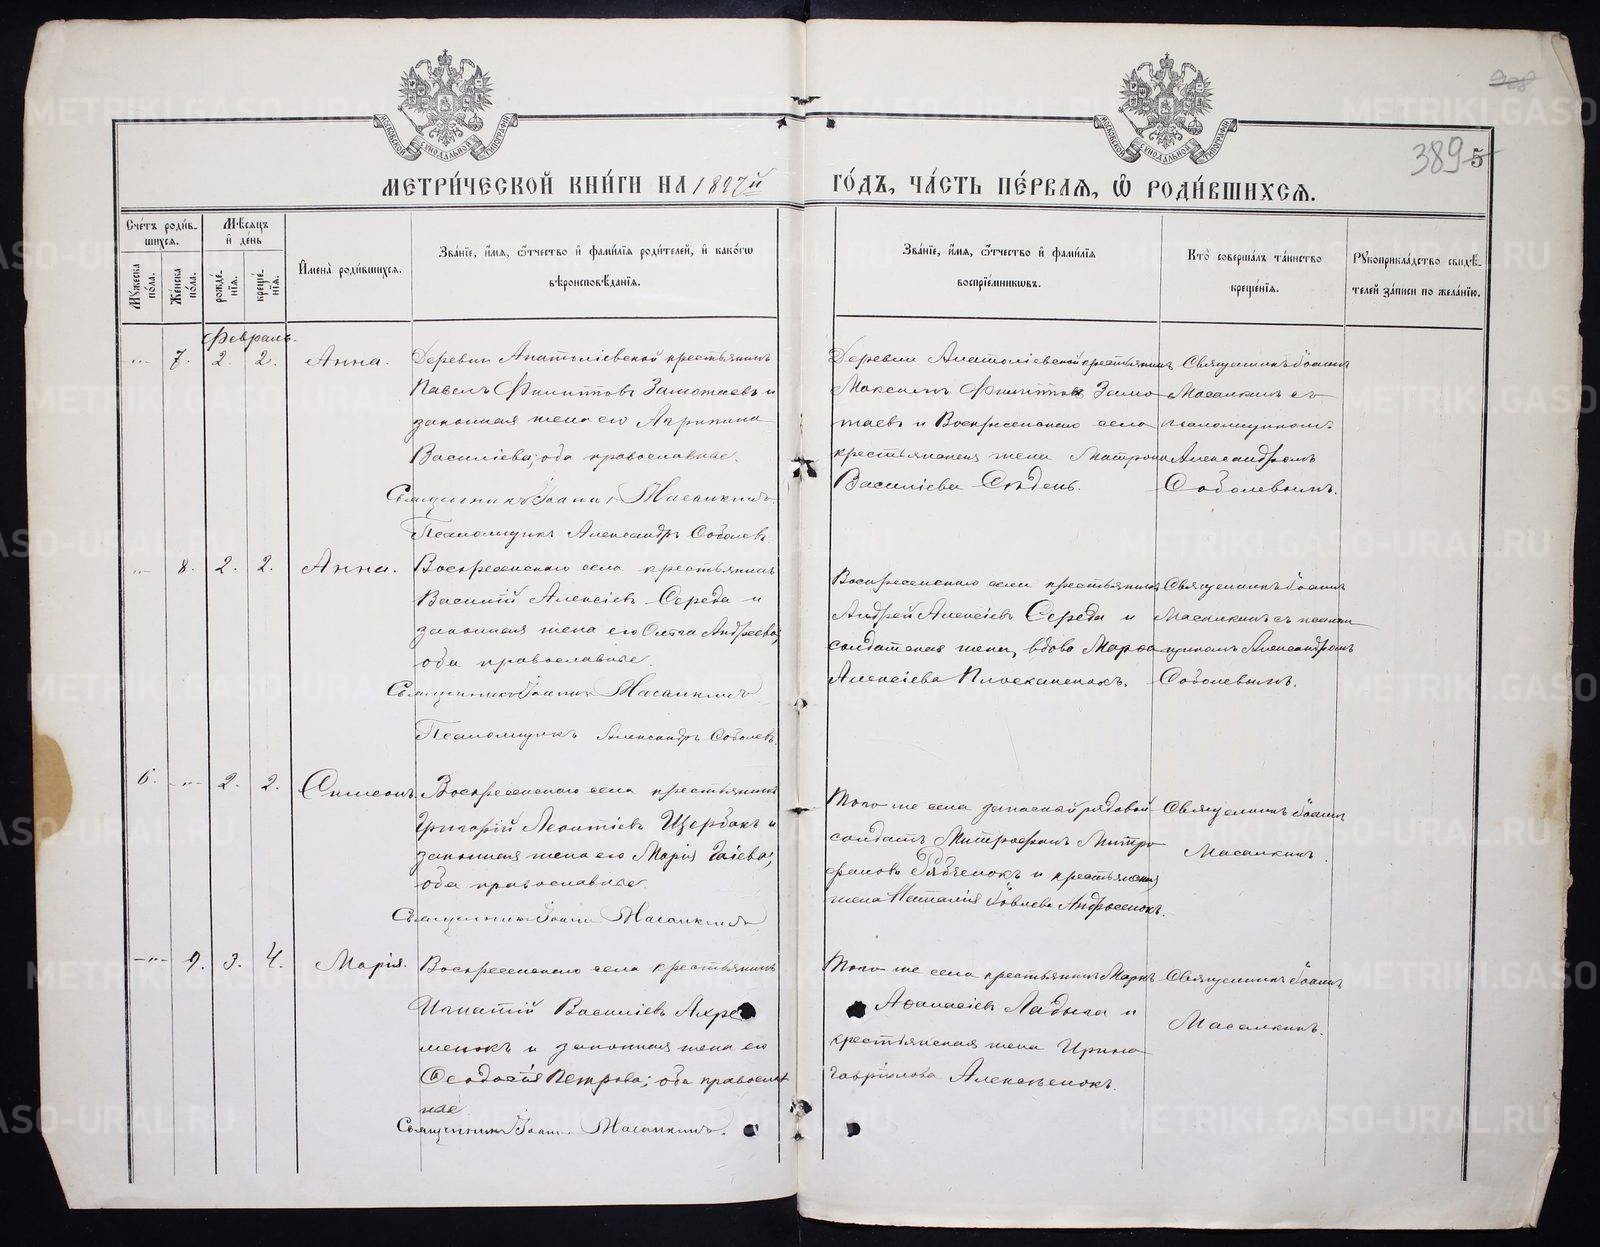 908
389
5
МОСКОВСКОЙ СѴНОДАЛЬНОЙ ТИПОГРАФИИ
МОСКОВСКОЙ СѴНОДАЛЬНОЙ ТИПОГРАФИИ
МЕТРИ́ЧЕСКОЙ КНИ́ГИ НА 1897й
ГО́ДЪ, ЧА́СТЬ ПЕ́РВАѦ, Ѡ҆ РОДИ́ВШИХСѦ.
Сче́тъ роди́в-
шихсѧ.
Мѣ́сѧцъ
и҆ де́нь
Мꙋ́жеска по́ла.
Же́нска по́ла.
рожде́-
нїѧ.
креще́-
нїѧ.
И҆мена̀ роди́вшихсѧ.
Зва́нїе, и҆́мѧ, ѻ҆́тчество и҆ фами́лїѧ роди́телей, и҆ како́гѡ
вѣроисповѣ́данїѧ.
Зва́нїе, и҆́мѧ, ѻ҆́тчество и҆ фами́лїѧ
воспрїе́мникѡвъ.
Кто̀ соверша́лъ та́инство
креще́нїѧ.
Рꙋкоприкла́дство свидѣ́-
телей за́писи по жела́нїю.
Февраль.
-"- 7. 2. 2. Анна.
Деревни Анатолiевской крестьянинъ
Павелъ Филипповъ Замотаевъ и
законная жена его Агрипина
Василiева; оба православные.
Священникъ Iоаннъ Масалкинъ
Псаломщикъ Александръ Соболевъ
Деревни Анатолiевской крестьянинъ
Максимъ Филипповъ Замо
таевъ и Воскресенскаго села
крестьянская жена Матрона
Василiева
Священникъ Iоаннъ
Масалкинъ съ
псаломщикомъ
Александромъ
Соболевымъ.
-"- 8. 2. 2. Анна.
Воскресенскаго села крестьянинъ
Василiй Алексiевъ Середа и
законная жена его Ольга Андреева;
оба православные.
Священникъ Iоаннъ Масалкинъ
Псаломщикъ Александръ Соболевъ.
Воскресенскаго села крестьянинъ
Андрей Алексiевъ Середа и
солдатская жена, вдова Марѳа
Алексiева Плосканенокъ.
Священникъ Iоаннъ
Масалкинъ съ псалом
щикомъ Александромъ
Соболевымъ.
6. -"- 2. 2. Симеонъ.
Воскресенскаго села крестьянинъ
Григорiй Леонтiевъ Щербакъ и
законная жена его Марiя
оба православные.
Священникъ Iоаннъ Масалкинъ
Того же села запасный рядовой
солдатъ Митрофанъ Митро
фановъ Рябченокъ и крестьянская
жена Наталiя Iовлева Андросенокъ.
Священникъ Iоаннъ
Масалкинъ.
-"- 9. 3. 4. Марiя.
Воскресенскаго села крестьянинъ
Игнатiй Василiевъ Ахре
менокъ и законная жена его
Ѳеодосiя Петрова; оба православ
ные.
Священникъ Iоаннъ Масалкинъ.
Того же села крестьянинъ Маркъ
Аѳанасiевъ Ладыга и
крестьянская жена Ирина
Гаврiилова Алексеенокъ.
Священникъ Iоаннъ
Масалкинъ.
METRIKI.GASO-URAL.RU